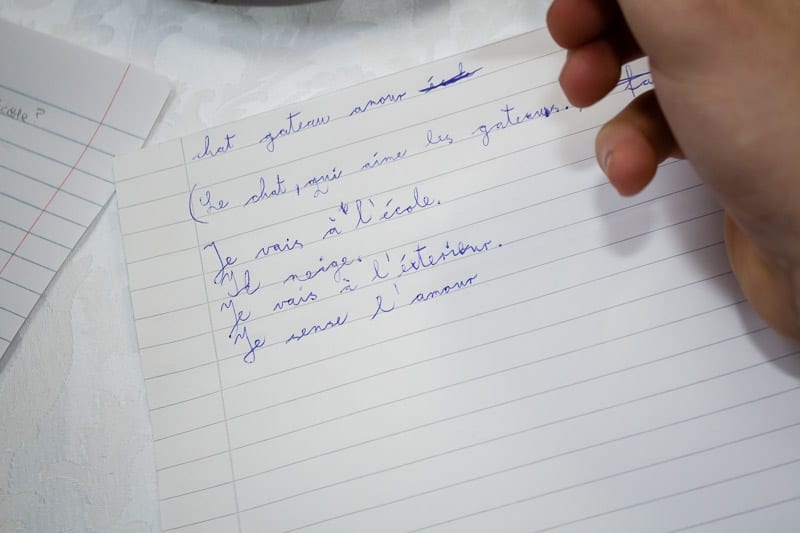 école ?
chat gateau amour
(Le chat, qui aime les gateaus.
Je vais à l'école.
Il neige.
Je vais à l'éxterieur.
Je sense l'amour